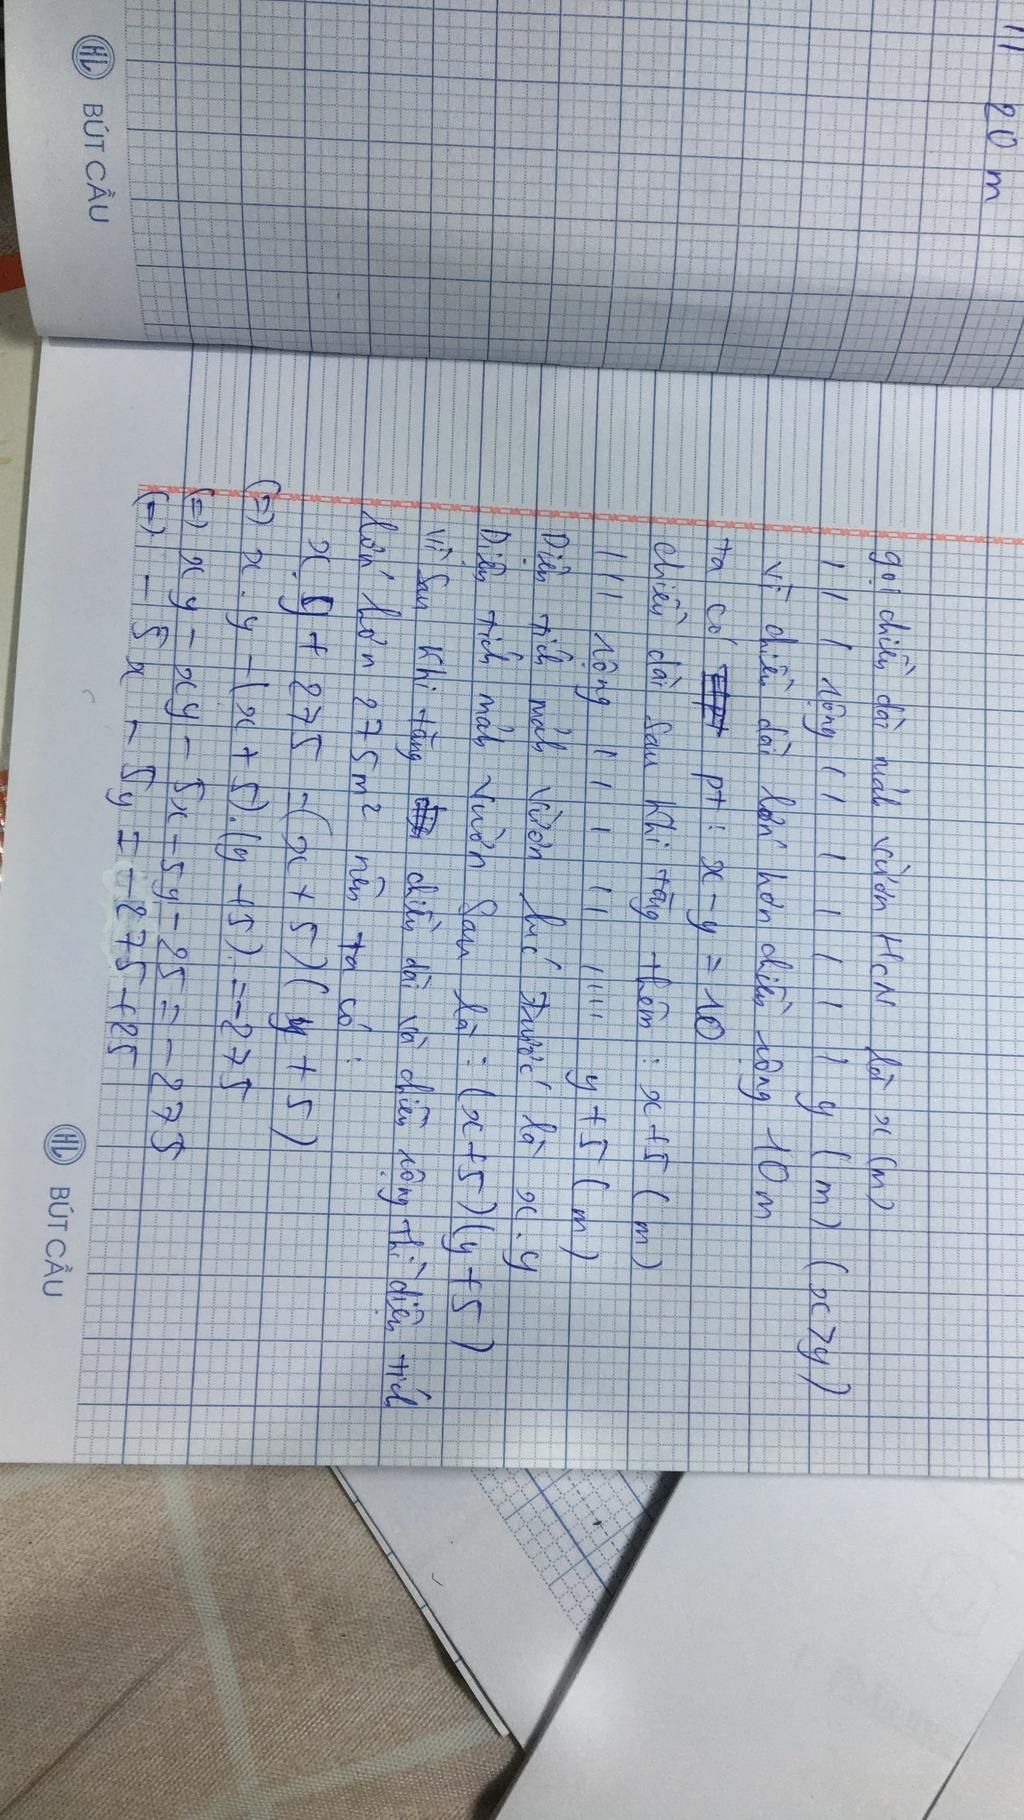 11 20 m
gọi chiều dài mảnh vườn HCN là x (m)
1 11 1 rộng 11 1 1 1 1 y (m) (x>y)
Vì chiều dài lớn hơn chiều rộng 10 m
ta có pt: x - y = 10
chiều dài sau khi tăng thêm: x+5 (m)
1 1 1 rộng 1 1 1 11 1111 y+5 (m)
Diện tích mảnh vườn lúc trước là x.y
Diện tích mảnh vườn sau là: (x+5)(y+5)
Vì sau khi tăng chiều dài và chiều rộng thì diện tích
lớn hơn 275m² nên ta có:
x.y + 275 = (x+5)(y+5)
(=) x.y - (x+5).(y+5) = -275
(=) xy - xy - 5x - 5y - 25 = -275
(=) -5x - 5y = -275+25
HL BÚT CẦU
HL BÚT CẦU